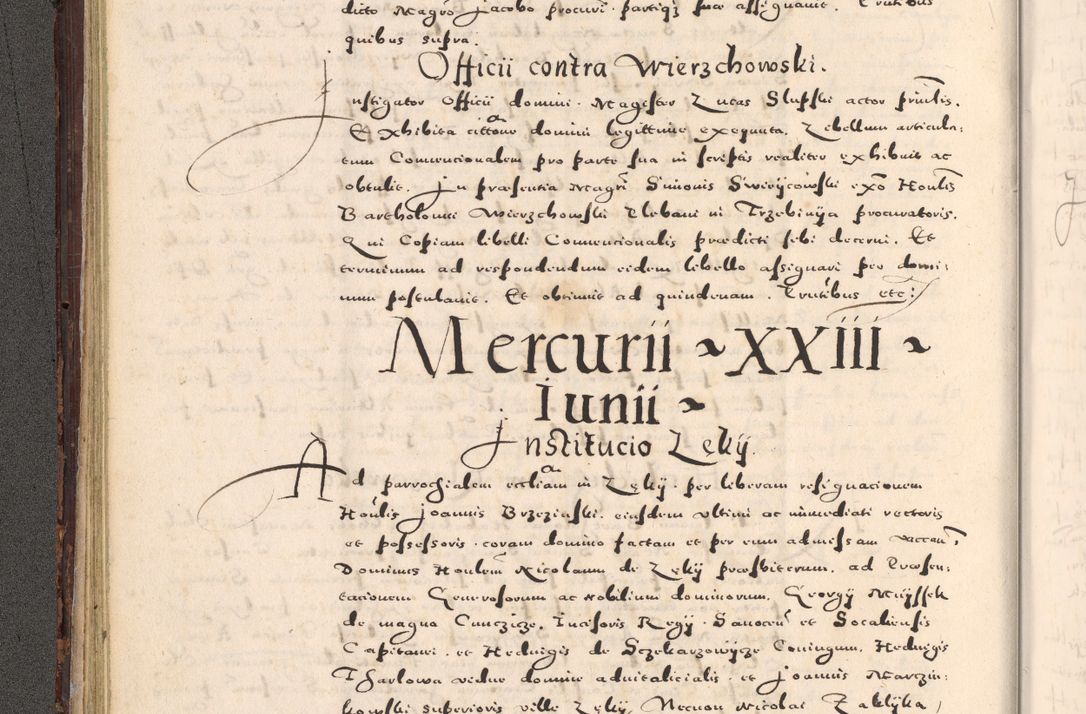 dicto Magro Jacobo procuri partiqз sue assignavit.
quibus supra.
Officii contra Wierzchowski.
Instigator Officii domini. Magister Lucas Slupski actor principalis.
Et Exhibita citatione domini legittime exequuta. Libellum articula:
tum Convencionalem pro parte sua in scriptis realiter exhibuit ac
obtulit. In præsentia Magri Simonis Swiеycowski exo Honlis
Bartholomei Wierzchowski Plebani in Trzebinija procuratoris.
Qui Copiam libelli Convencionalis prædicti sibi decerni. Et
terminum ad respondendum eidem libello assignari per domi:
num postulavit. Et obtinuit ad quindenam. Prntibus etc:
Mercurii ~ XXIII ~
Iunii ~
Institucio Zękij.
Ad parrochialem eccliam in Zękij per liberam resignacionem
Honlis Joannis Brzezinski. eiusdem ultimi ac immediati rectoris
et possessoris. coram domino factam et per eum admissam vaccan
Dominus Honlem Nicolaum de Zękij præsbiterum. ad Præsen:
tacionem Generosorum ac Nobilium dominorum. Georgij Mniyssek
de magna Cunczicze. Incisoris Regij. Sanocen et Socaliensis
Capitanei. et Hedvigis de Sczekarzowijcze Coniugum. Hedvigis
Tharlowa vidue domine advitalicialis. et Joannis Marczin:
kowski superioris ville Zękij Necnon Nicolai Zaklyka,